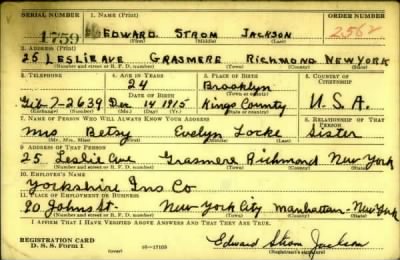 SERIAL NUMBER 1. NAME (Print) ORDER NUMBER
1759 EDWARD STROM JACKSON 2562
(First) (Middle) (Last)
2. ADDRESS (Print)
25 LESLIE AVE GRASMERE RICHMOND NEW YORK
(Number and street or R. F. D. number) (Town) (County) (State)
3. TELEPHONE 4. AGE IN YEARS 5. PLACE OF BIRTH 6. COUNTRY OF CITIZENSHIP
24 Brooklyn
DATE OF BIRTH (Town or county)
Gib. 7-2639 Dec 14 1915 Kings County U.S.A.
(Exchange) (Number) (Mo.) (Day) (Yr.) (State or country)
7. NAME OF PERSON WHO WILL ALWAYS KNOW YOUR ADDRESS 8. RELATIONSHIP OF THAT PERSON
Mrs Betsy Evelyn Locke Sister
(Mr., Mrs., Miss) (First) (Middle) (Last)
9. ADDRESS OF THAT PERSON
25 Leslie Ave Grasmere Richmond New York
(Number and street or R. F. D. number) (Town) (County) (State)
10. EMPLOYER'S NAME
Yorkshire Ins Co
11. PLACE OF EMPLOYMENT OR BUSINESS
90 Johns St. New York City Manhattan New York
(Number and street or R. F. D. number) (Town) (County) (State)
I AFFIRM THAT I HAVE VERIFIED ABOVE ANSWERS AND THAT THEY ARE TRUE.
REGISTRATION CARD
D. S. S. Form 1 16-17105 Edward Strom Jackson